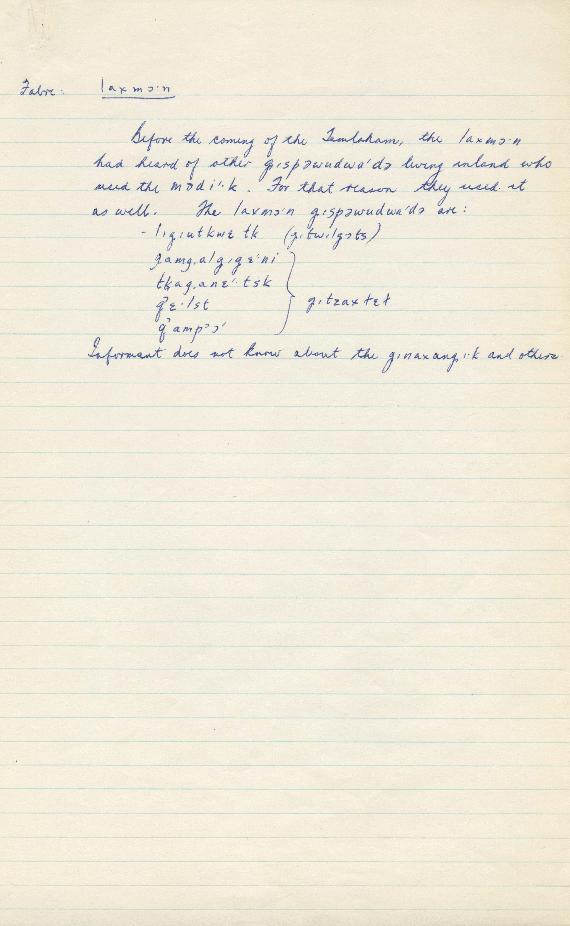 Fabre: laxmɔ·n
Before the coming of the Temlaham, the laxmɔ·n
had heard of other gɩspəwudwa'də living inland who
used the mədi·'k. For that reason they used it
as well. The laxmɔ·n gɩspəwudwa'də are:
- lɩgɩutkwɛ tk (gɩtwɩlgɔts)
gamg.algɩgɛ'ni
tkaganɛ'tsk
q'ɛ·lst gɩtzaxłɛł
q'ampɔɔ'
Informant does not know about the gɩnaxangɩ·k and others